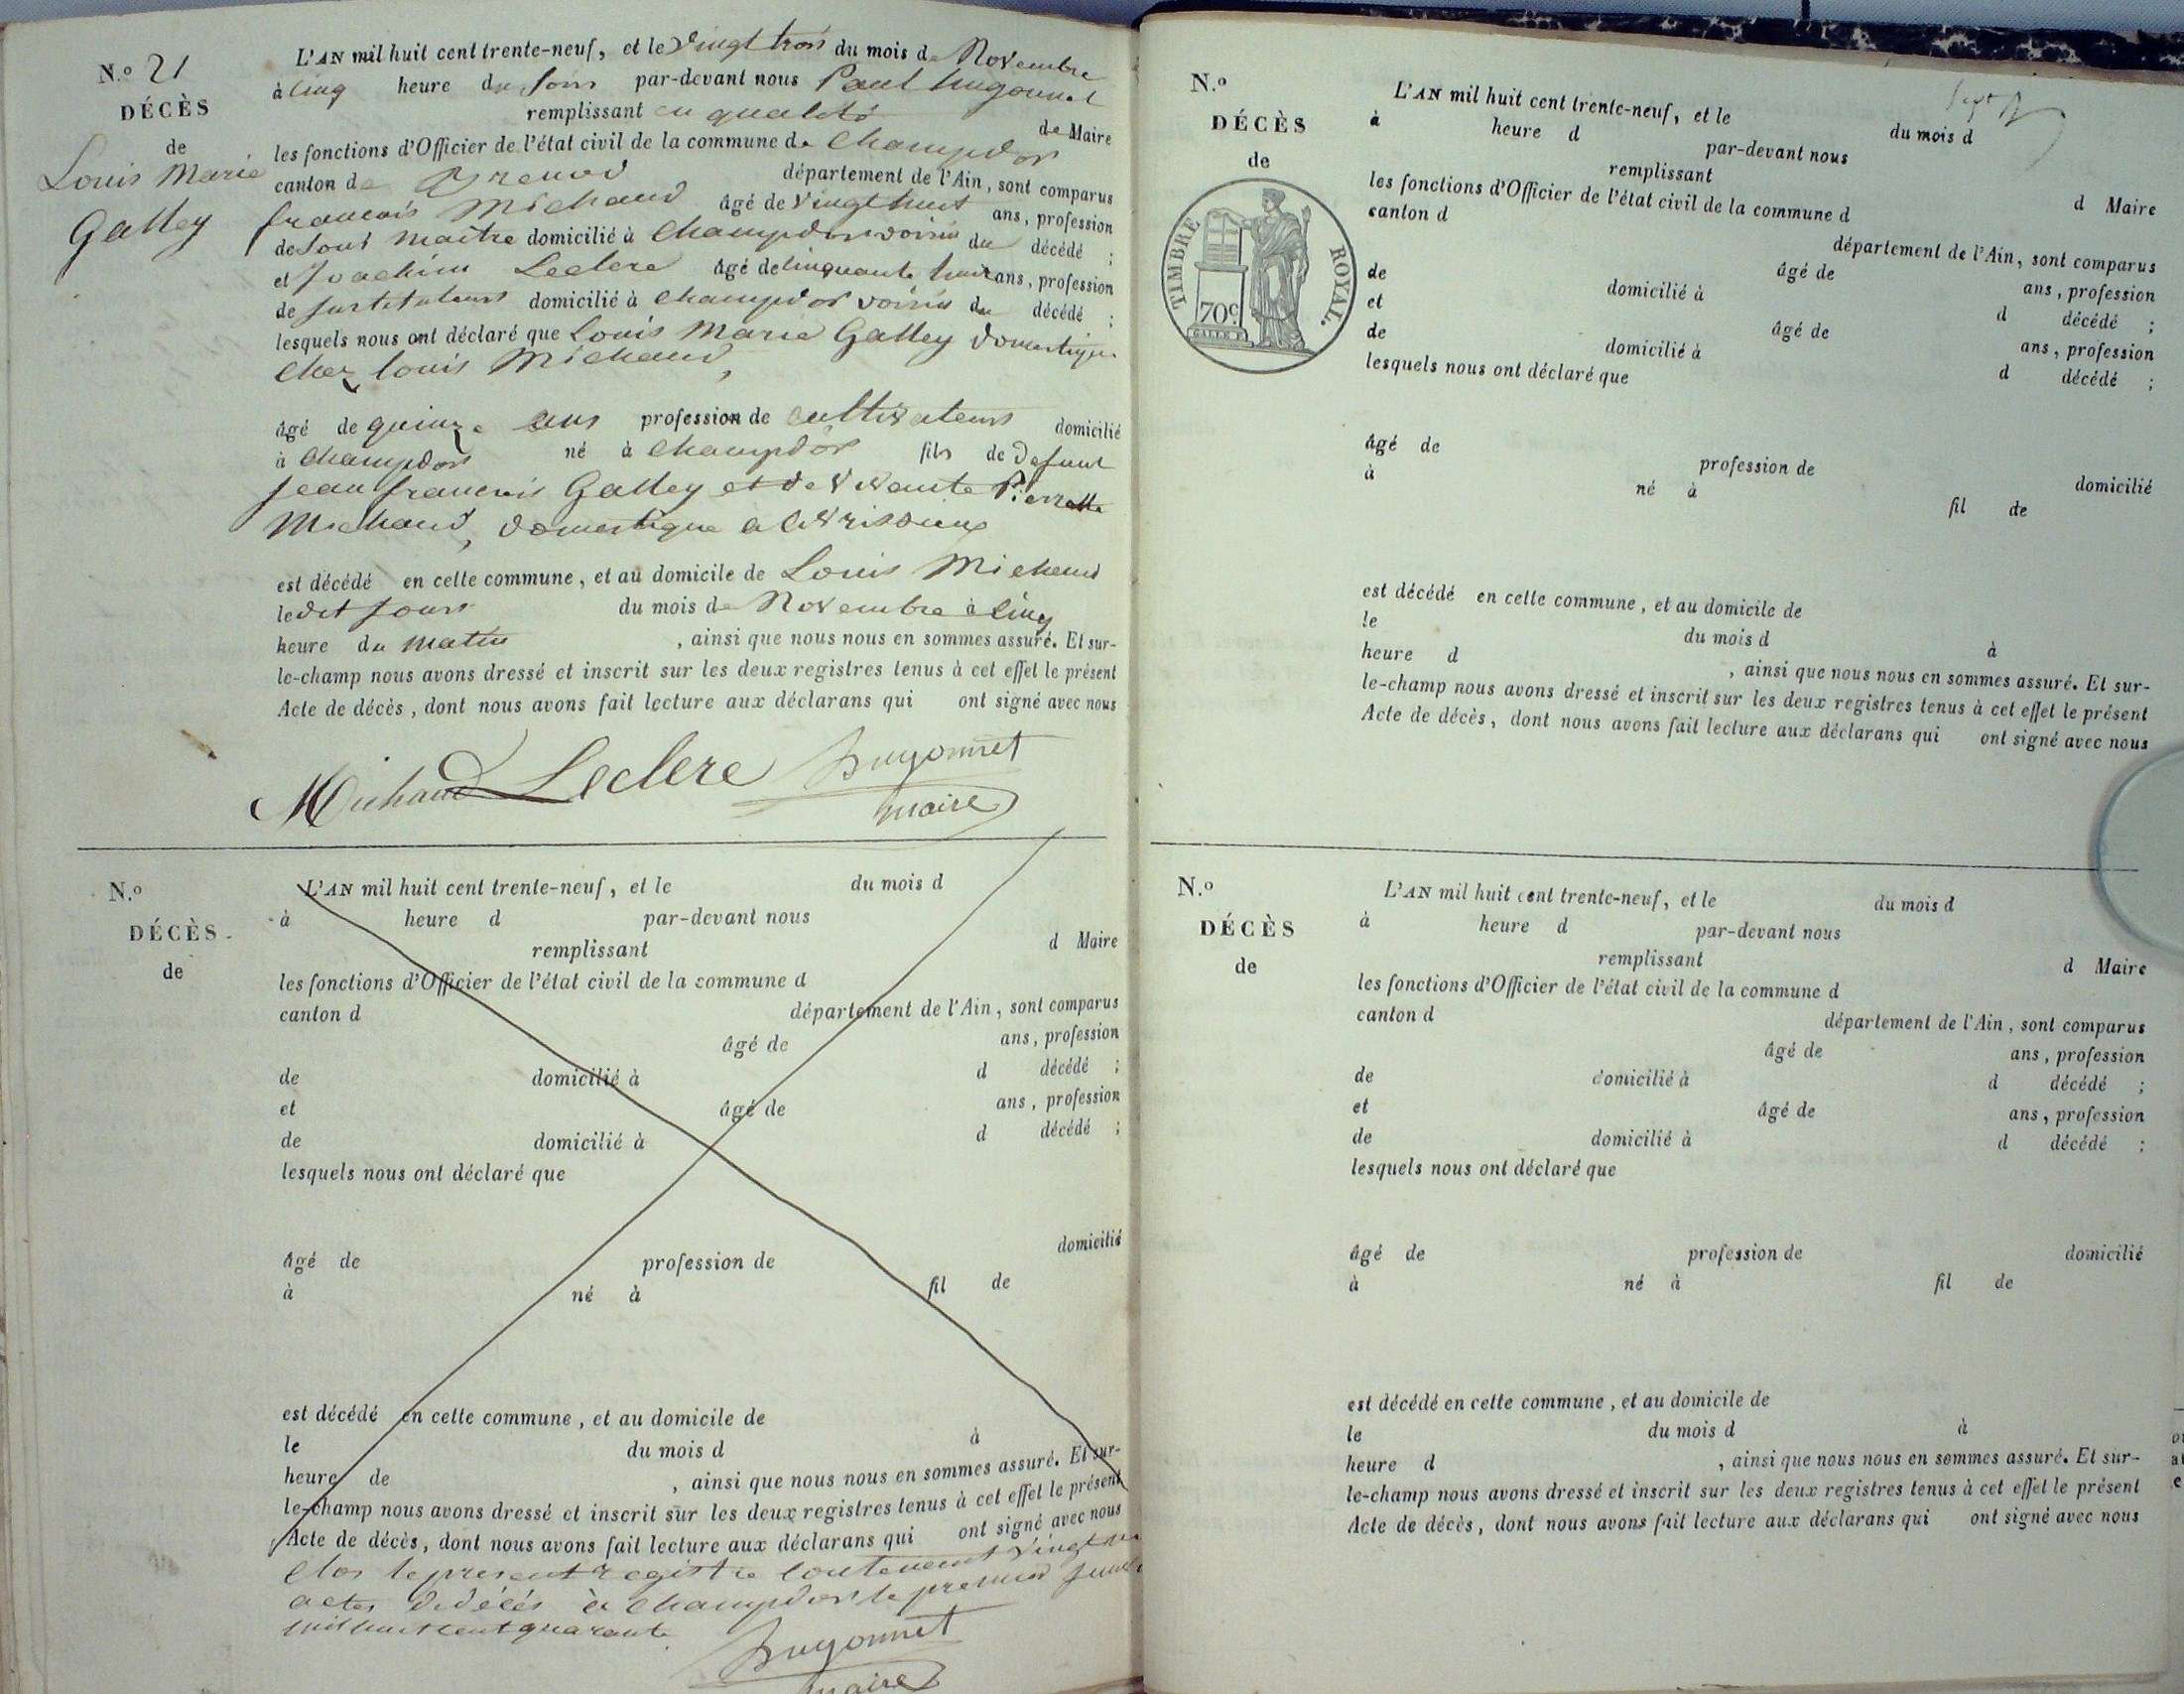 N.º 21
DÉCÈS
de
Louis Marie
Galley
L'AN mil huit cent trente-neuf, et le vingt trois du mois de Novembre
à cinq heure du soir par-devant nous Paul hugonnet
remplissant en qualité de Maire
les fonctions d'Officier de l'état civil de la commune de Champdor
canton de Brenod département de l'Ain, sont comparus
francois Michaud âgé de vingt huit ans, profession
de sous maitre domicilié à Champdor voisin du décédé ;
et Joachim Leclerc âgé de cinquante huit ans, profession
de Instituteur domicilié à Champdor voisin du décédé ;
lesquels nous ont déclaré que Louis Marie Galley domestique
chez louis Michaud,
âgé de quinze ans profession de cultivateur domicilié
à Champdor né à Champdor fils de defunt
Jean francois Galley et de vivante Pierrette
Michaud, domestique a
est décédé en cette commune, et au domicile de Louis Michaud
le dit jour du mois de Novembre à cinq
heure du matin , ainsi que nous nous en sommes assuré. Et sur-
le-champ nous avons dressé et inscrit sur les deux registres tenus à cet effet le présent
Acte de décès, dont nous avons fait lecture aux déclarans qui ont signé avec nous
Michaud Leclere hugonnet
maire
N.º
DÉCÈS
de
L'AN mil huit cent trente-neuf, et le du mois d
à heure d par-devant nous
remplissant d Maire
les fonctions d'Officier de l'état civil de la commune d
canton d département de l'Ain, sont comparus
âgé de ans, profession
de domicilié à d décédé ;
et âgé de ans, profession
de domicilié à d décédé ;
lesquels nous ont déclaré que
âgé de profession de domicilié
à né à fil de
est décédé en cette commune, et au domicile de
le du mois d à
heure de , ainsi que nous nous en sommes assuré. Et sur-
le-champ nous avons dressé et inscrit sur les deux registres tenus à cet effet le présent
Acte de décès, dont nous avons fait lecture aux déclarans qui ont signé avec nous
Clos le present registre contenent vingt
actes de décés à Champdor le premier
mil huit cent quarante
hugonnet
maire
N.º
DÉCÈS
de
TIMBRE ROYAL.
70c.
L'AN mil huit cent trente-neuf, et le du mois d
à heure d par-devant nous
remplissant d Maire
les fonctions d'Officier de l'état civil de la commune d
canton d département de l'Ain, sont comparus
âgé de ans, profession
de domicilié à d décédé ;
et âgé de ans, profession
de domicilié à d décédé ;
lesquels nous ont déclaré que
âgé de profession de domicilié
à né à fil de
est décédé en cette commune, et au domicile de
le du mois d à
heure d , ainsi que nous nous en sommes assuré. Et sur-
le-champ nous avons dressé et inscrit sur les deux registres tenus à cet effet le présent
Acte de décès, dont nous avons fait lecture aux déclarans qui ont signé avec nous
N.º
DÉCÈS
de
L'AN mil huit cent trente-neuf, et le du mois d
à heure d par-devant nous
remplissant d Maire
les fonctions d'Officier de l'état civil de la commune d
canton d département de l'Ain, sont comparus
âgé de ans, profession
de domicilié à d décédé ;
et âgé de ans, profession
de domicilié à d décédé ;
lesquels nous ont déclaré que
âgé de profession de domicilié
à né à fil de
est décédé en cette commune, et au domicile de
le du mois d à
heure d , ainsi que nous nous en sommes assuré. Et sur-
le-champ nous avons dressé et inscrit sur les deux registres tenus à cet effet le présent
Acte de décès, dont nous avons fait lecture aux déclarans qui ont signé avec nous